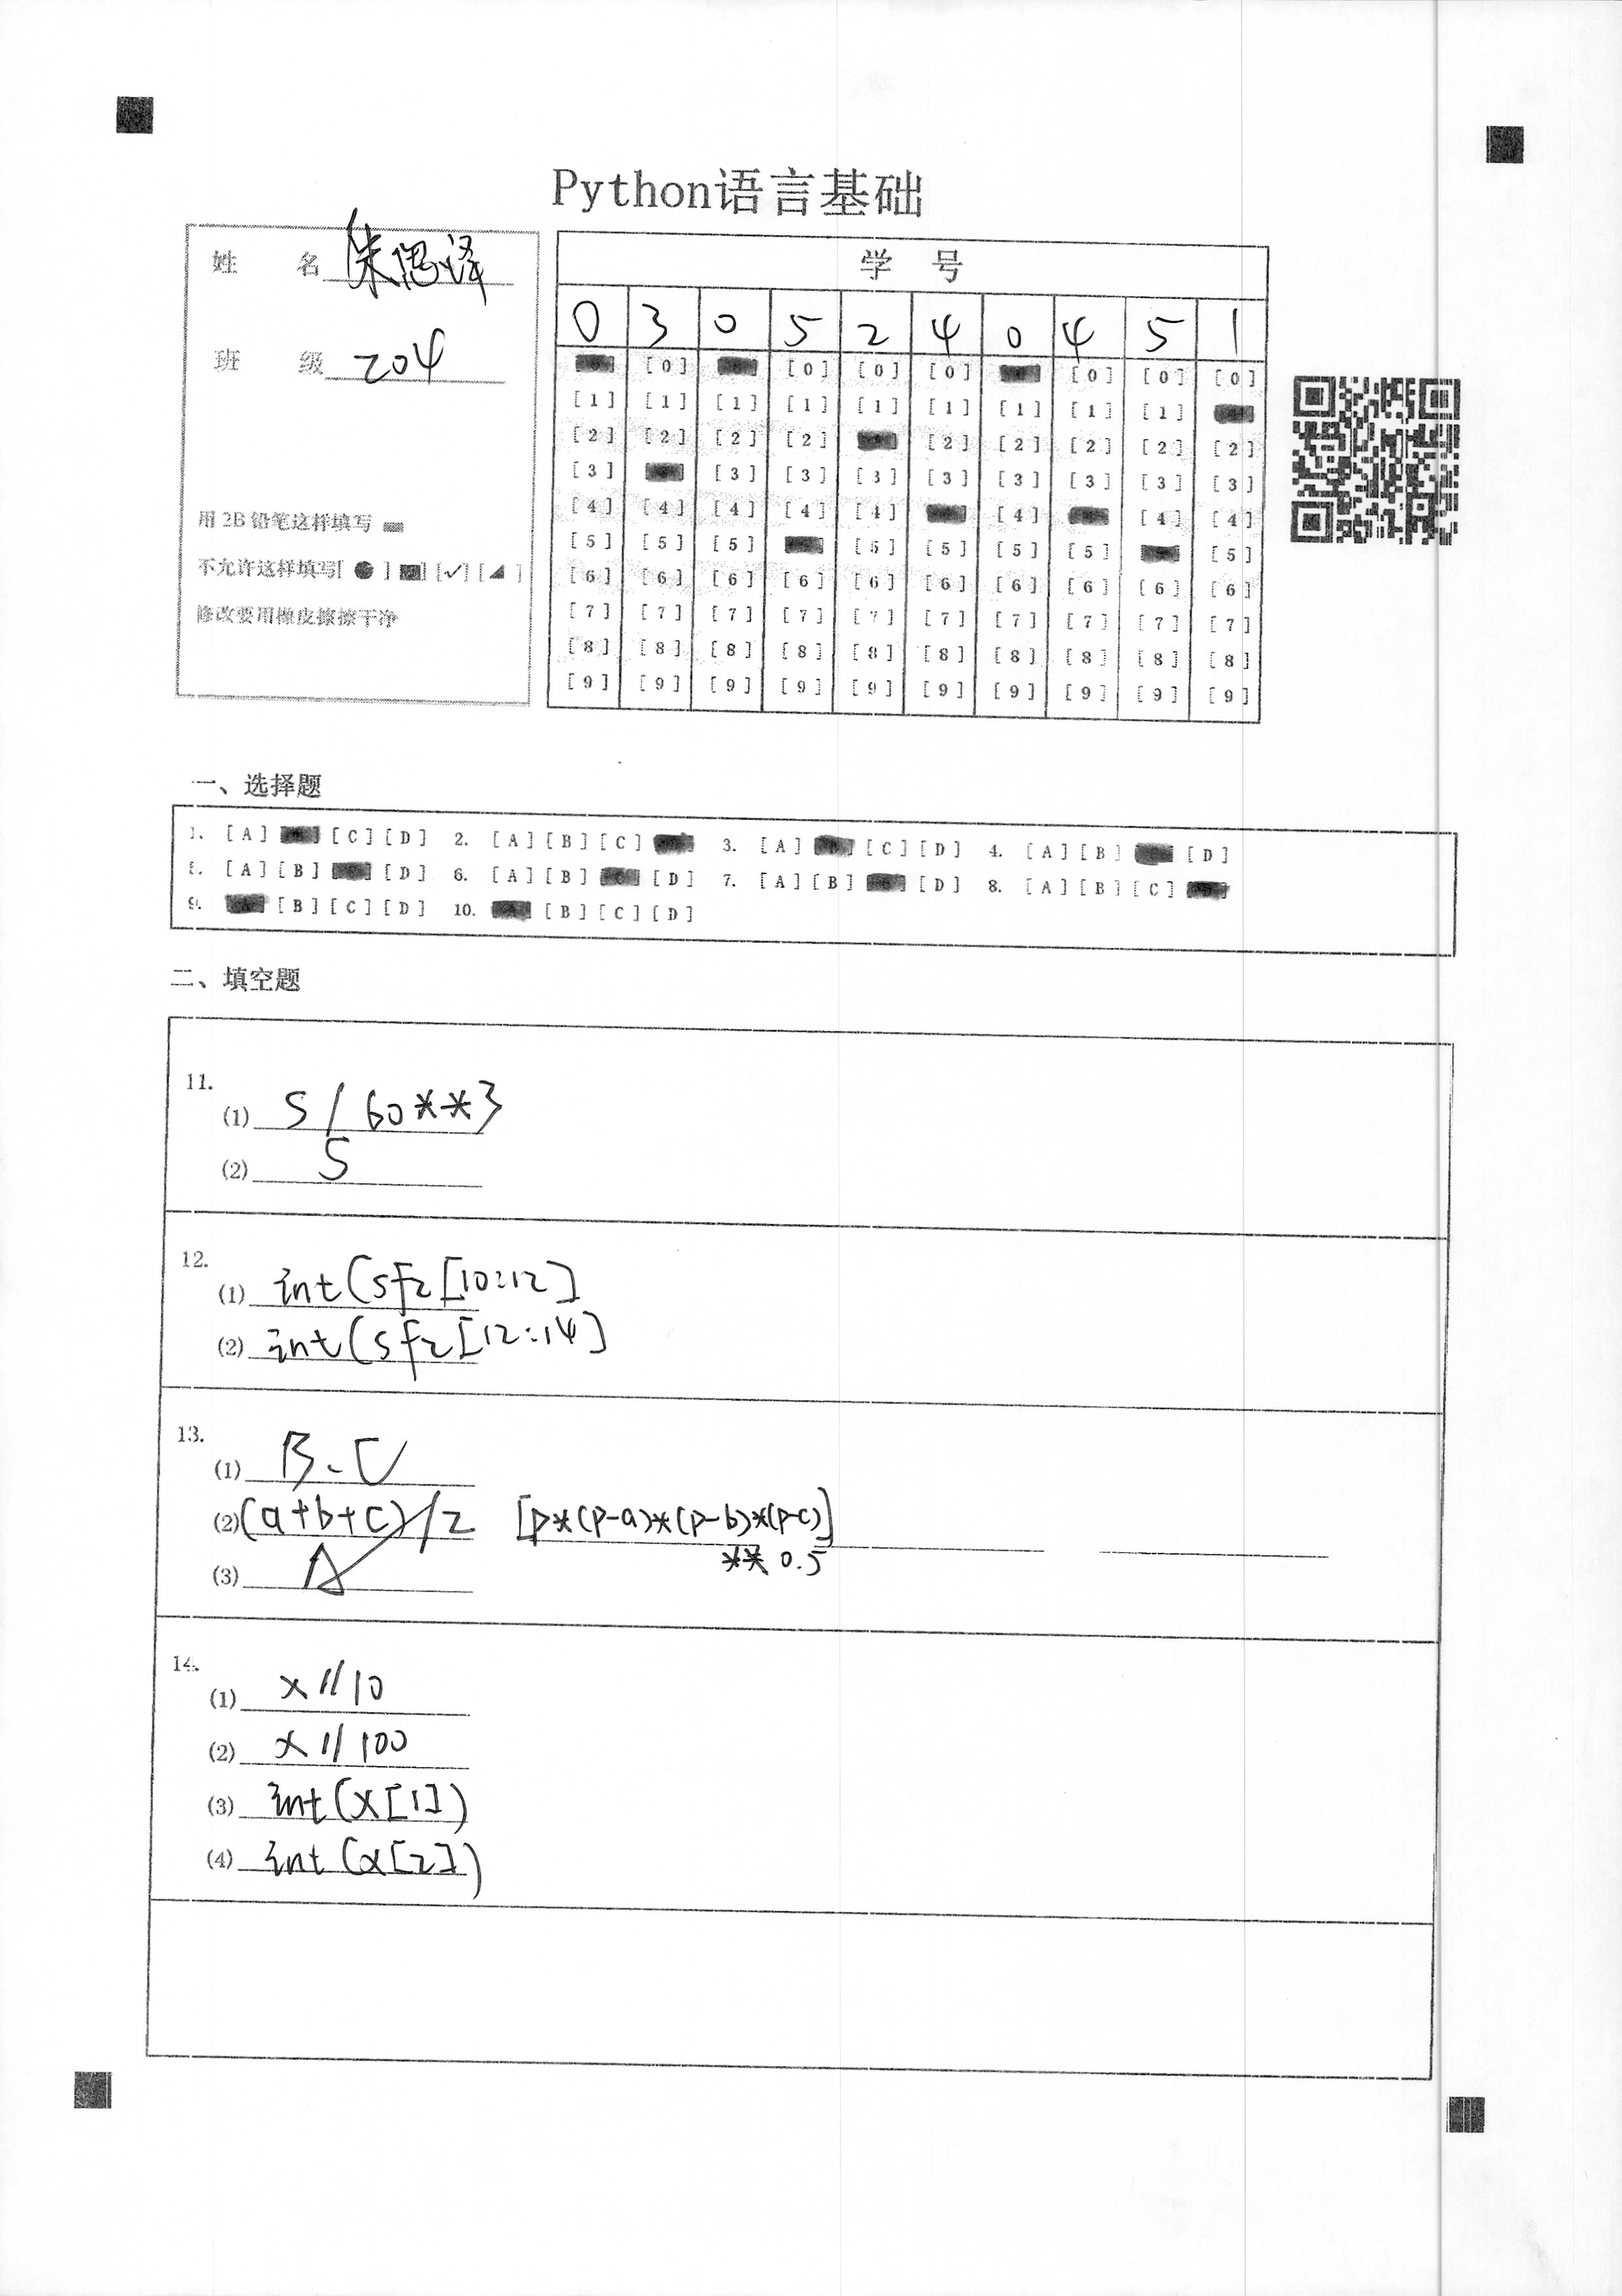 Python语言基础
姓 名 朱思泽
班 级 204
用 2B 铅笔这样填写
不允许这样填写[ ● ] [■] [✓] [◢ ]
修改要用橡皮擦擦干净
学 号
0 3 0 5 2 4 0 4 5 1
[0] [0] [0] [0] [0] [0]
[1] [1] [1] [1] [1] [1] [1] [1] [1]
[2] [2] [2] [2] [2] [2] [2] [2] [2]
[3] [3] [3] [3] [3] [3] [3] [3] [3]
[4] [4] [4] [4] [4] [4] [4] [4]
[5] [5] [5] [5] [5] [5] [5] [5]
[6] [6] [6] [6] [6] [6] [6] [6] [6] [6]
[7] [7] [7] [7] [7] [7] [7] [7] [7] [7]
[8] [8] [8] [8] [8] [8] [8] [8] [8] [8]
[9] [9] [9] [9] [9] [9] [9] [9] [9] [9]
一、选择题
1. [A] [C] [D] 2. [A] [B] [C] 3. [A] [C] [D] 4. [A] [B] [D]
5. [A] [B] [D] 6. [A] [B] [D] 7. [A] [B] [D] 8. [A] [B] [C]
9. [B] [C] [D] 10. [B] [C] [D]
二、填空题
11.
(1) S / 60**3
(2) S
12.
(1) int(sfz[10:12]
(2) int(sfz[12:14]
13.
(1) B、C
(2) (a+b+c)/2 [p*(p-a)*(p-b)*(p-c)]
**0.5
(3) A
14.
(1) x//10
(2) x//100
(3) int(x[1])
(4) int(x[2])